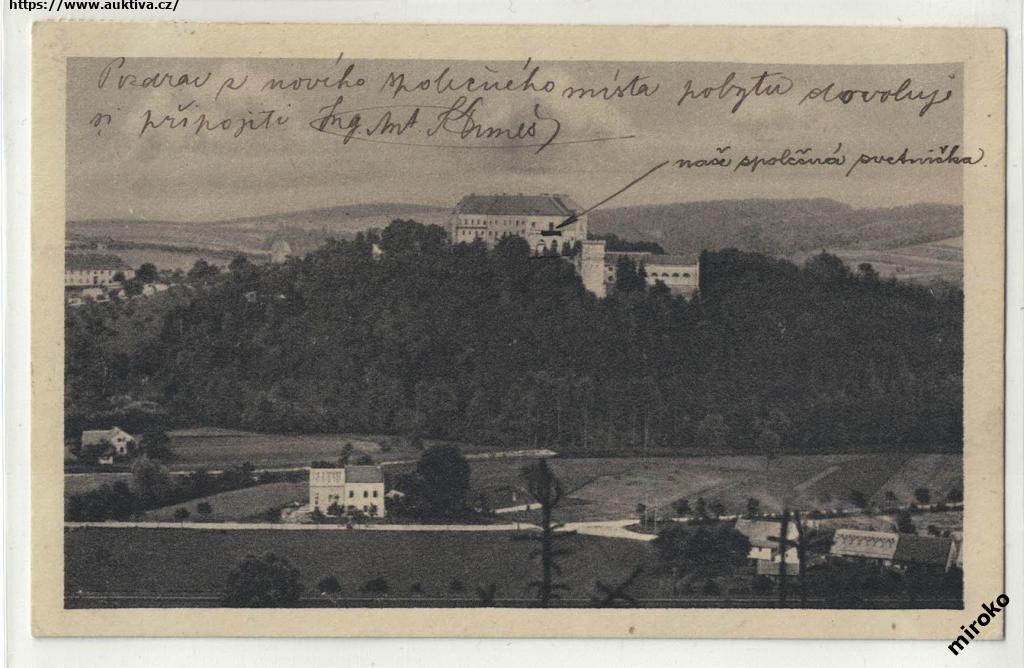 https://www.auktiva.cz/
Pozdrav z nového společného místa pobytu dovoluje
si připojiti Ing. Ant.
naše společná svetnička.
miroko